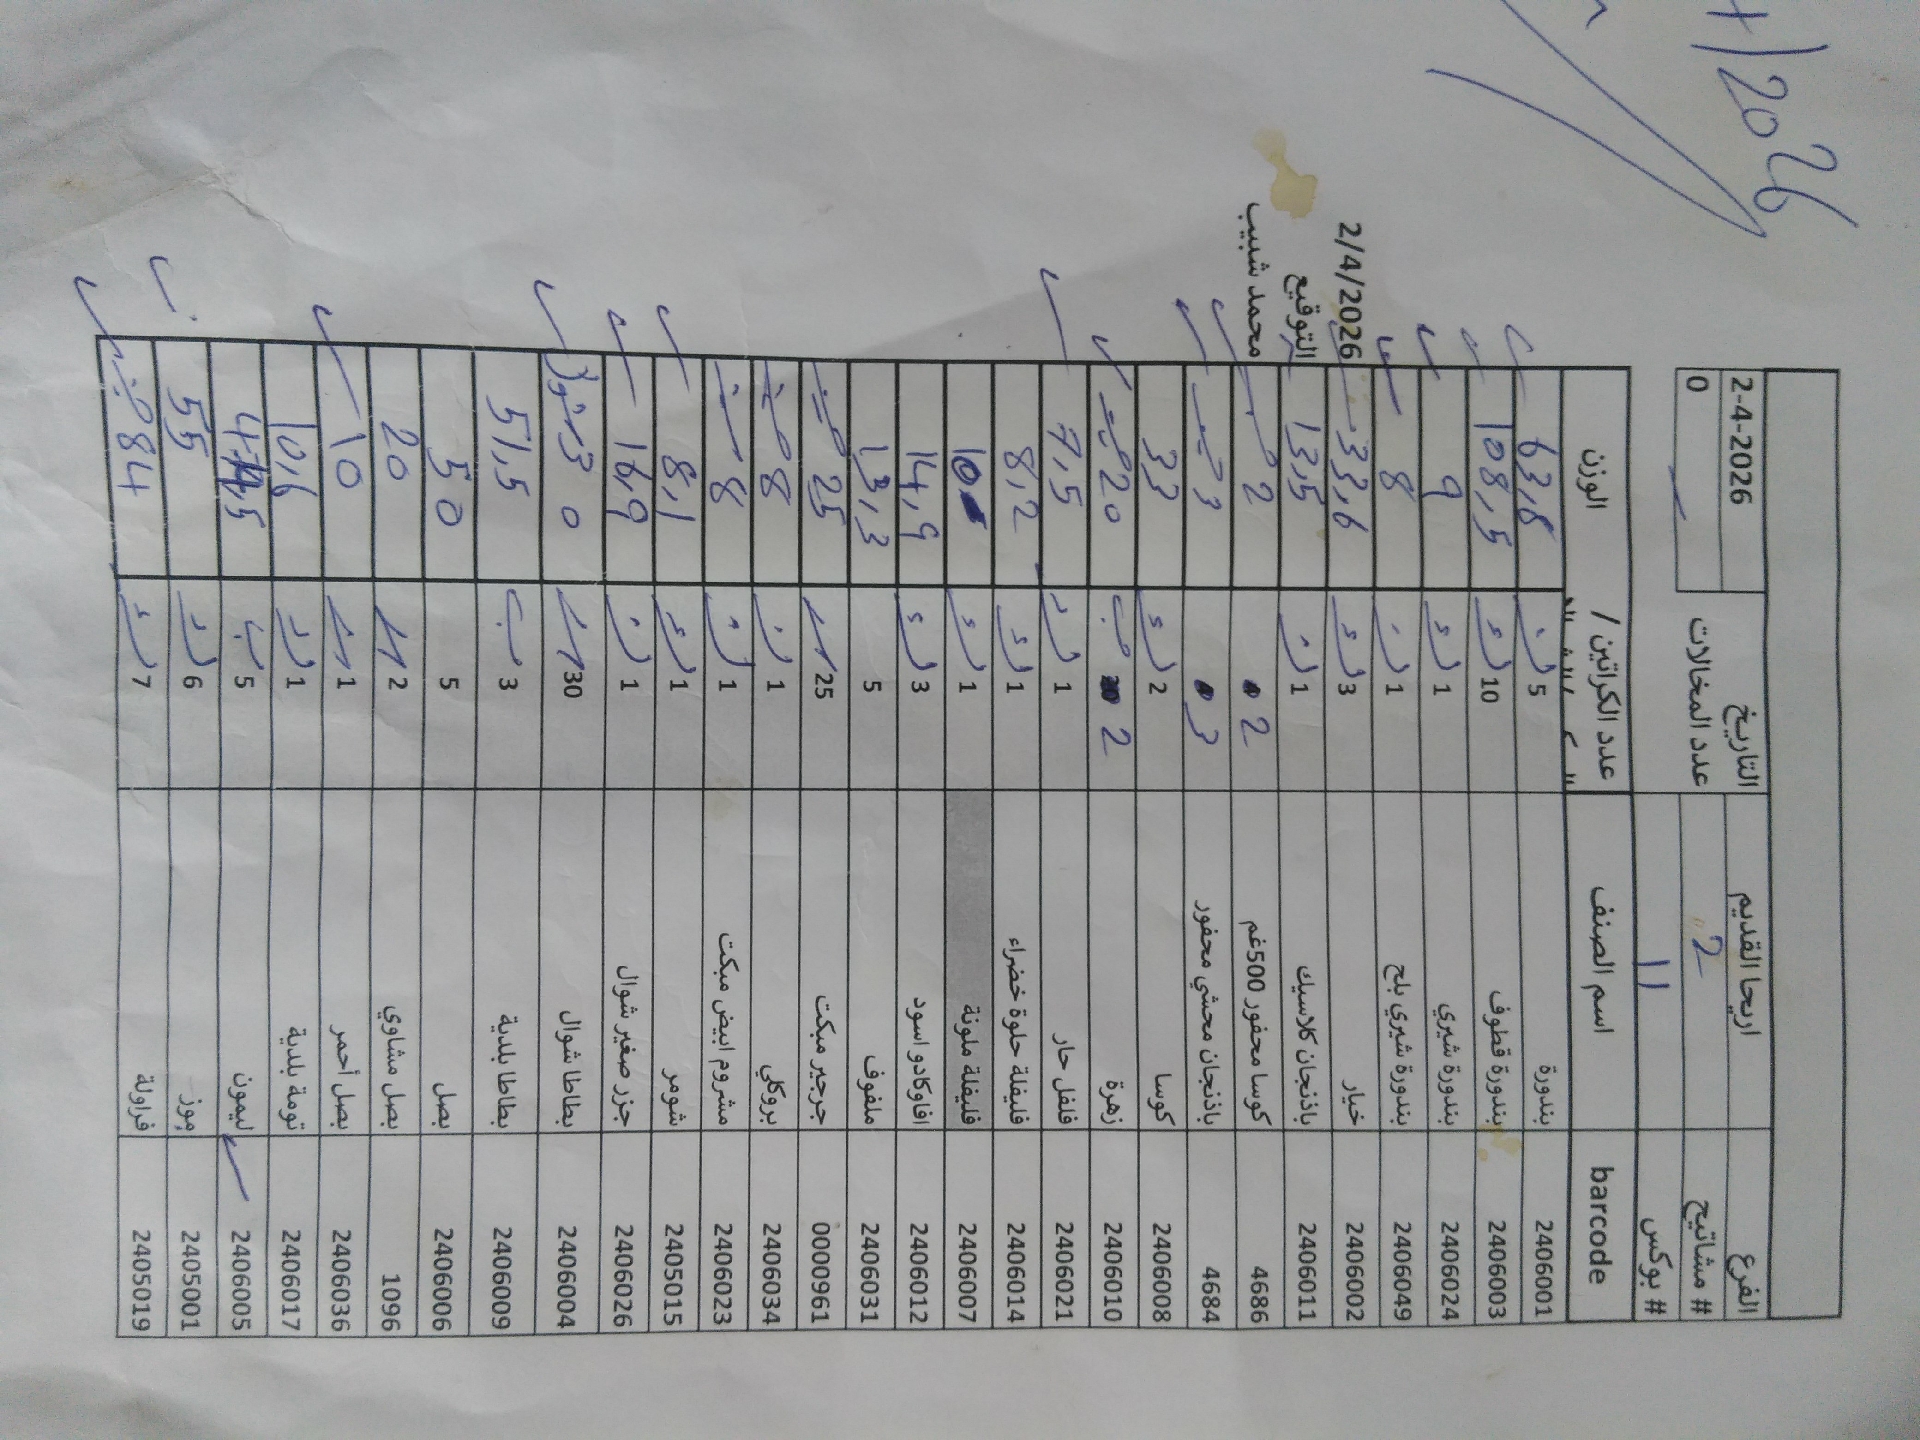 2026
الفرع اريحا القديم التاريخ 2-4-2026
# مشاتيح 2 عدد المخالات 0
# بوكس 11
barcode اسم الصنف عدد الكراتين / الوزن
2406001 بندورة 5 63,8
2406003 بندورة قطوف 10 108,5
2406024 بندورة شيري 1 9
2406049 بندورة شيري بلح 1 8
2406002 خيار 3 33,6
2406011 باذنجان كلاسيك 1 13,5
4686 كوسا محفور 500غم 2 2
4684 باذنجان محشي محفور 3 3
2406008 كوسا 2 33
2406010 زهرة 2 20
2406021 فلفل حار 1 7,5
2406014 فليفلة حلوة خضراء 1 8,2
2406007 فليفلة ملونة 1 10
2406012 افاوكادو اسود 3 14,9
2406031 ملفوف 5 13,3
00000961 جرجير مبكت 25 25
2406034 بروكلي 1 8
2406023 مشروم ابيض مبكت 1 8
2405015 شومر 1 8,1
2406026 جزر صغير شوال 1 16,9
2406004 بطاطا شوال 30 30
2406009 بطاطا بلدية 3 51,5
2406006 بصل 5 50
1096 بصل مشاوي 2 20
2406036 بصل أحمر 1 10
2406017 تومة بلدية 1 10,6
2406005 ليمون 5
2405001 موز 6 55
2405019 فراولة 7 84
2/4/2026
التوقيع
محمد شبيب